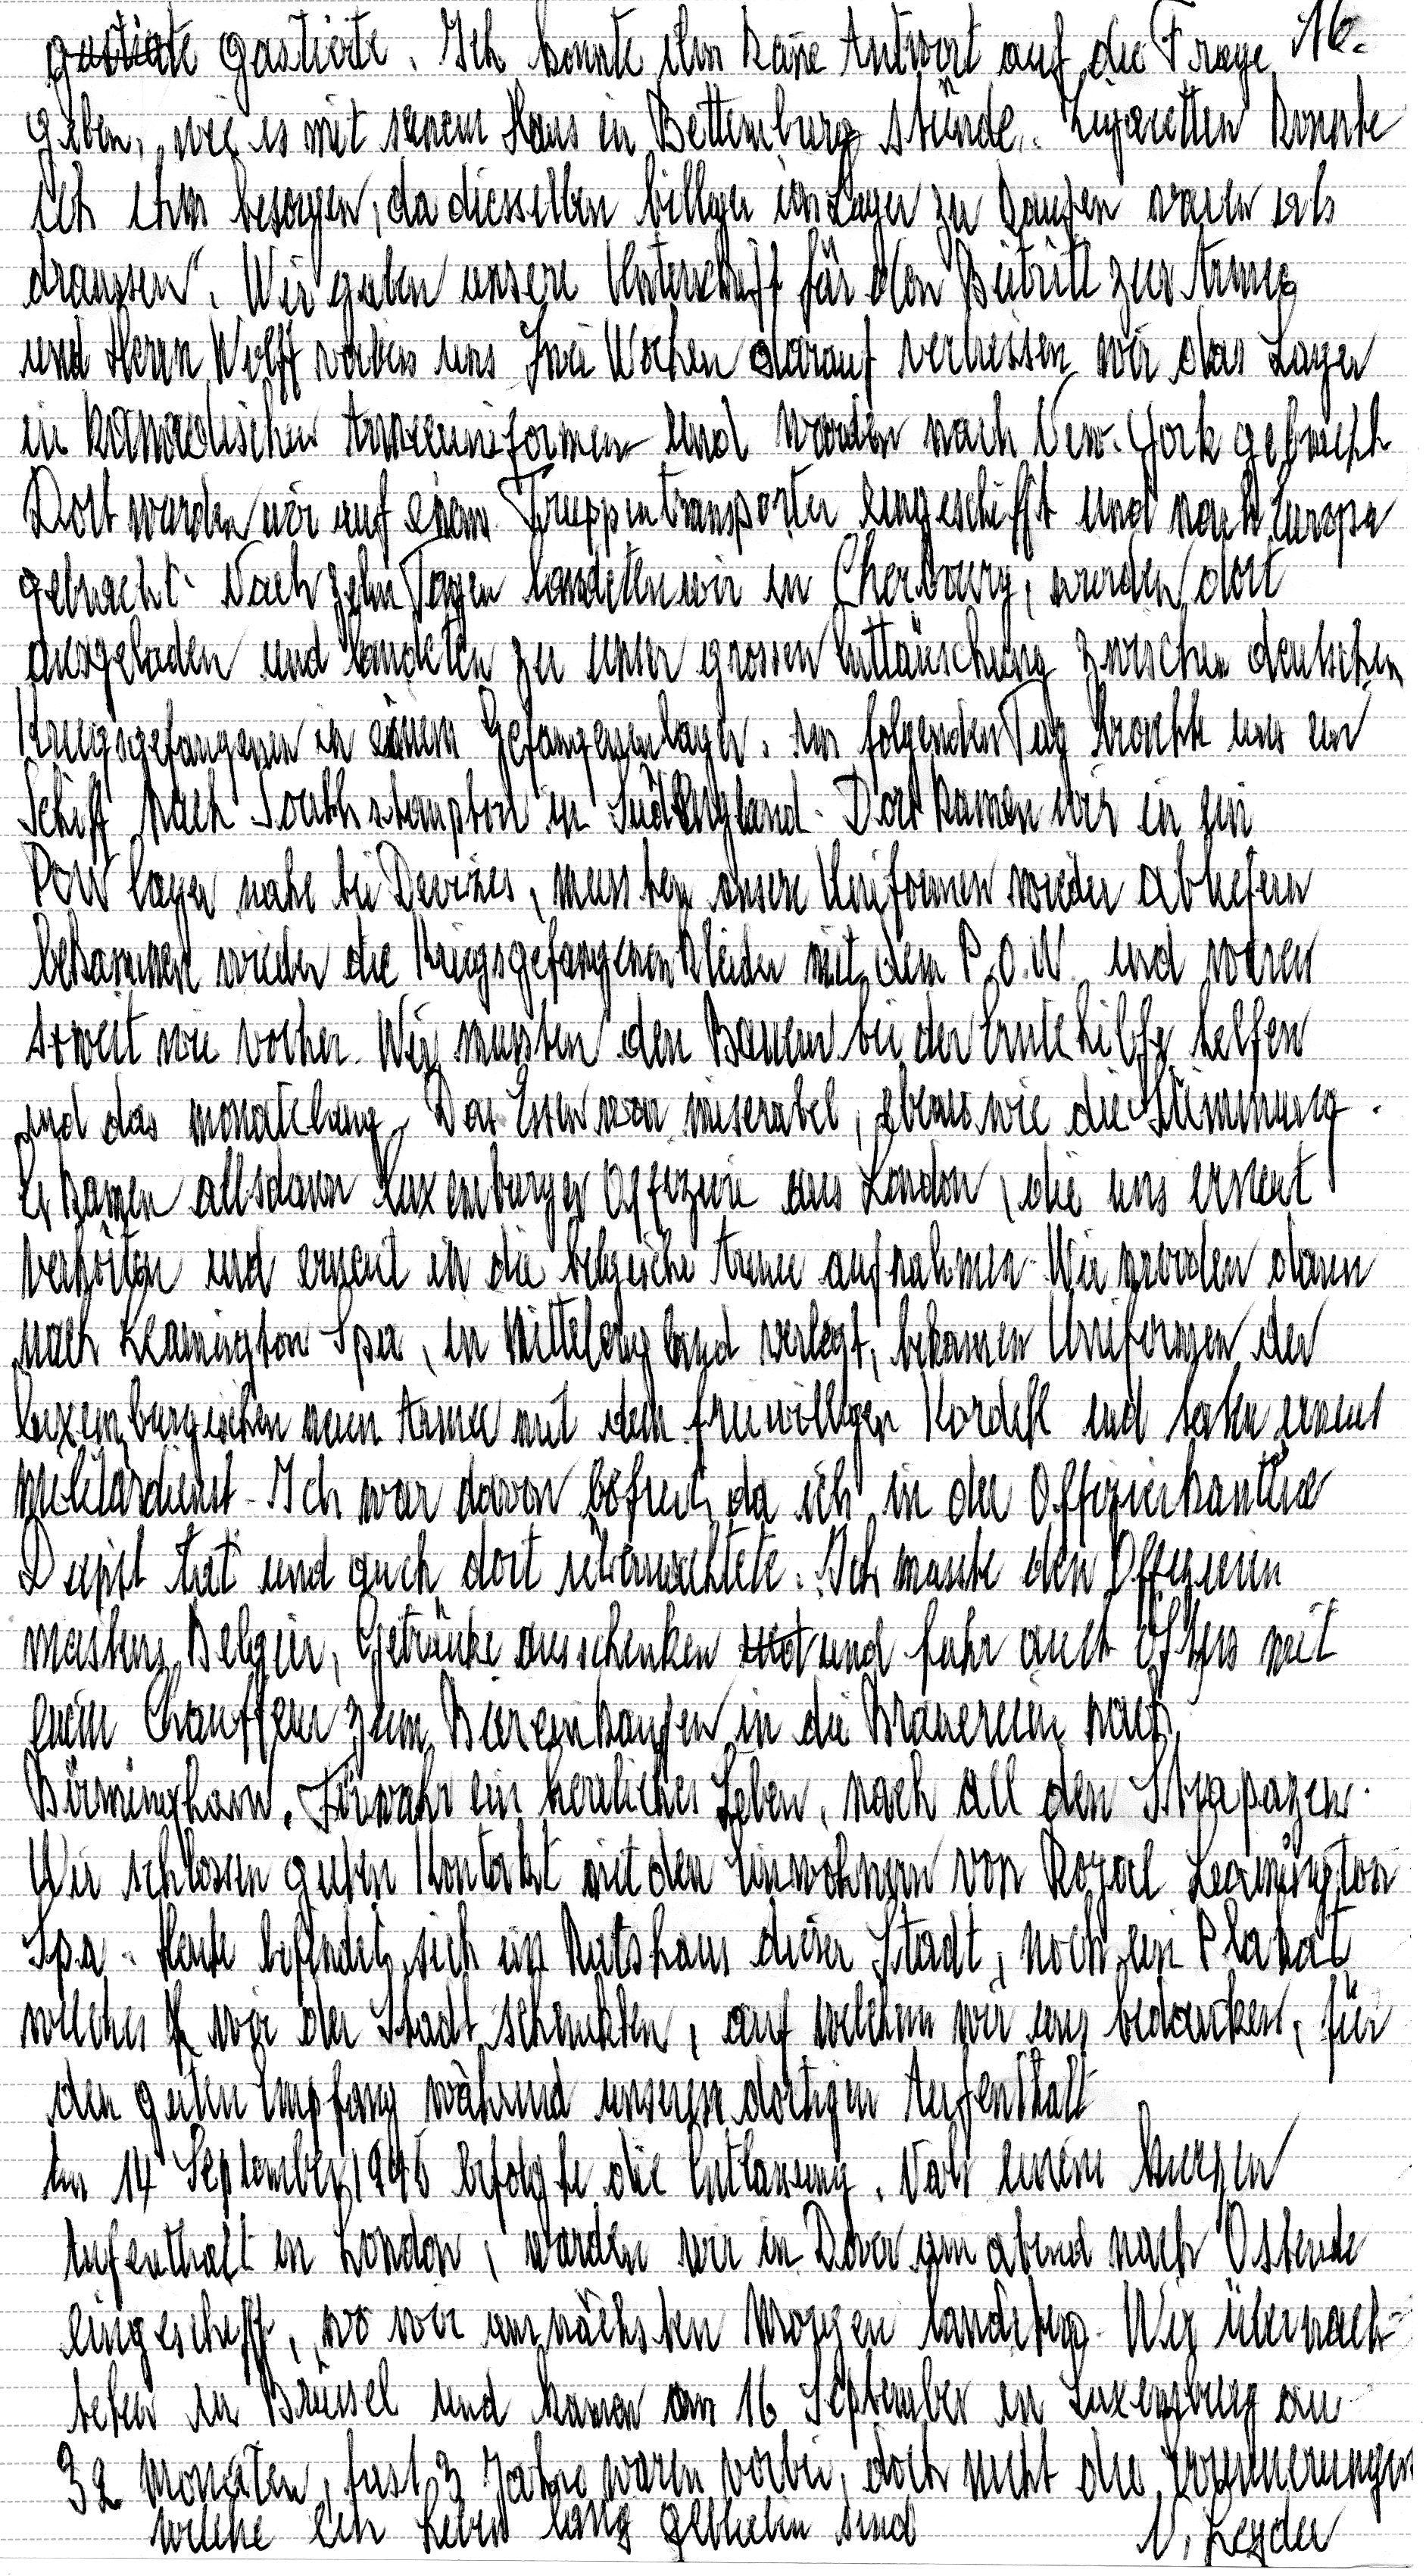 gastierte. Ich konnte ihm keine Antwort auf die Frage 16.
geben, wie es mit seinem Haus in Bettemburg stünde. Zigaretten konnte
ich ihm besorgen, da diesselben billiger im Lager zu kaufen waren als
draussen". Wir gaben unsere Unterschrift für den Beitritt zur Armee
und Herrn Wolff uns Zwei Wochen darauf verliessen wir das Lager
in kanadischen Armeeuniformen und wurden nach New-York gebracht
Dort wurden wir auf einem Truppentransporter eingeschifft und nach Europa
gebracht. Nach zehn Tagen landeten wir in Cherbourg, wurden dort
ausgeladen und landeten zu unser grossen Enttäuschung zwischen deutschen
Kriegsgefangenen in einem Gefangenenlager. Am folgenden Tag brachte uns ein
Schiff nach Southhampton in Südengland. Dort kamen wir in ein
POW Lager nahe bei Devizes, mussten unsere Uniformen wieder abliefern
bekammen wieder die Kriegsgefangenenkleider mit dem P.O.W und waren
soweit wie vorher. Wir mussten den Bauern bei der Erntehilfe helfen
und das monatelang. Das Essen war miserabel, ebenso wie die Stimmung.
Es kamen allsdann Luxemburger Offiziere aus London, die uns erneut
verhörten und erneut in die belgische Armee aufnahmen. Wir wurden dann
nach Leamington Spa, in Mittelengland verlegt, bekamen Uniformen der
luxemburgischen neuen Armee mit dem freiwilligen Kordell und taten erneut
Militärdienst. Ich war davon befreit, da ich in der Offizierkantine
Dienst tat und auch dort übernachtete. Ich musste den Offizieren
meistens Belgier, Getränke ausschenken und fuhr auch öfters mit
einem Chauffeur zum Biereinkaufen in die Brauereien nach
Birmingham. Fürwahr ein herrliches Leben, nach all den Strapazen.
Wir schlossen guten Kontakt mit den Einwohnern von Royal Leamington
Spa. Heute befindet sich im Rathaus dieser Stadt, noch ein Plakat
welches wir der Stadt schenkten, auf welchem wir uns bedanken, für
den guten Empfang während unseren dortigen Aufenthalt
Am 14 September 1945 erfolgte die Entlassung. Nach einem kurzen
Aufenthalt in London, wurden wir in Dover am abend nach Ostende
eingeschifft, wo wir am nächsten Morgen landeten. Wir übernach-
teten in Brüssel und kamen am 16 September in Luxemburg an
32 Monaten, fast 3 Jahre waren vorbei, doch nicht die Erinnerungen
welche ein Leben lang geblieben sind N. Leyder